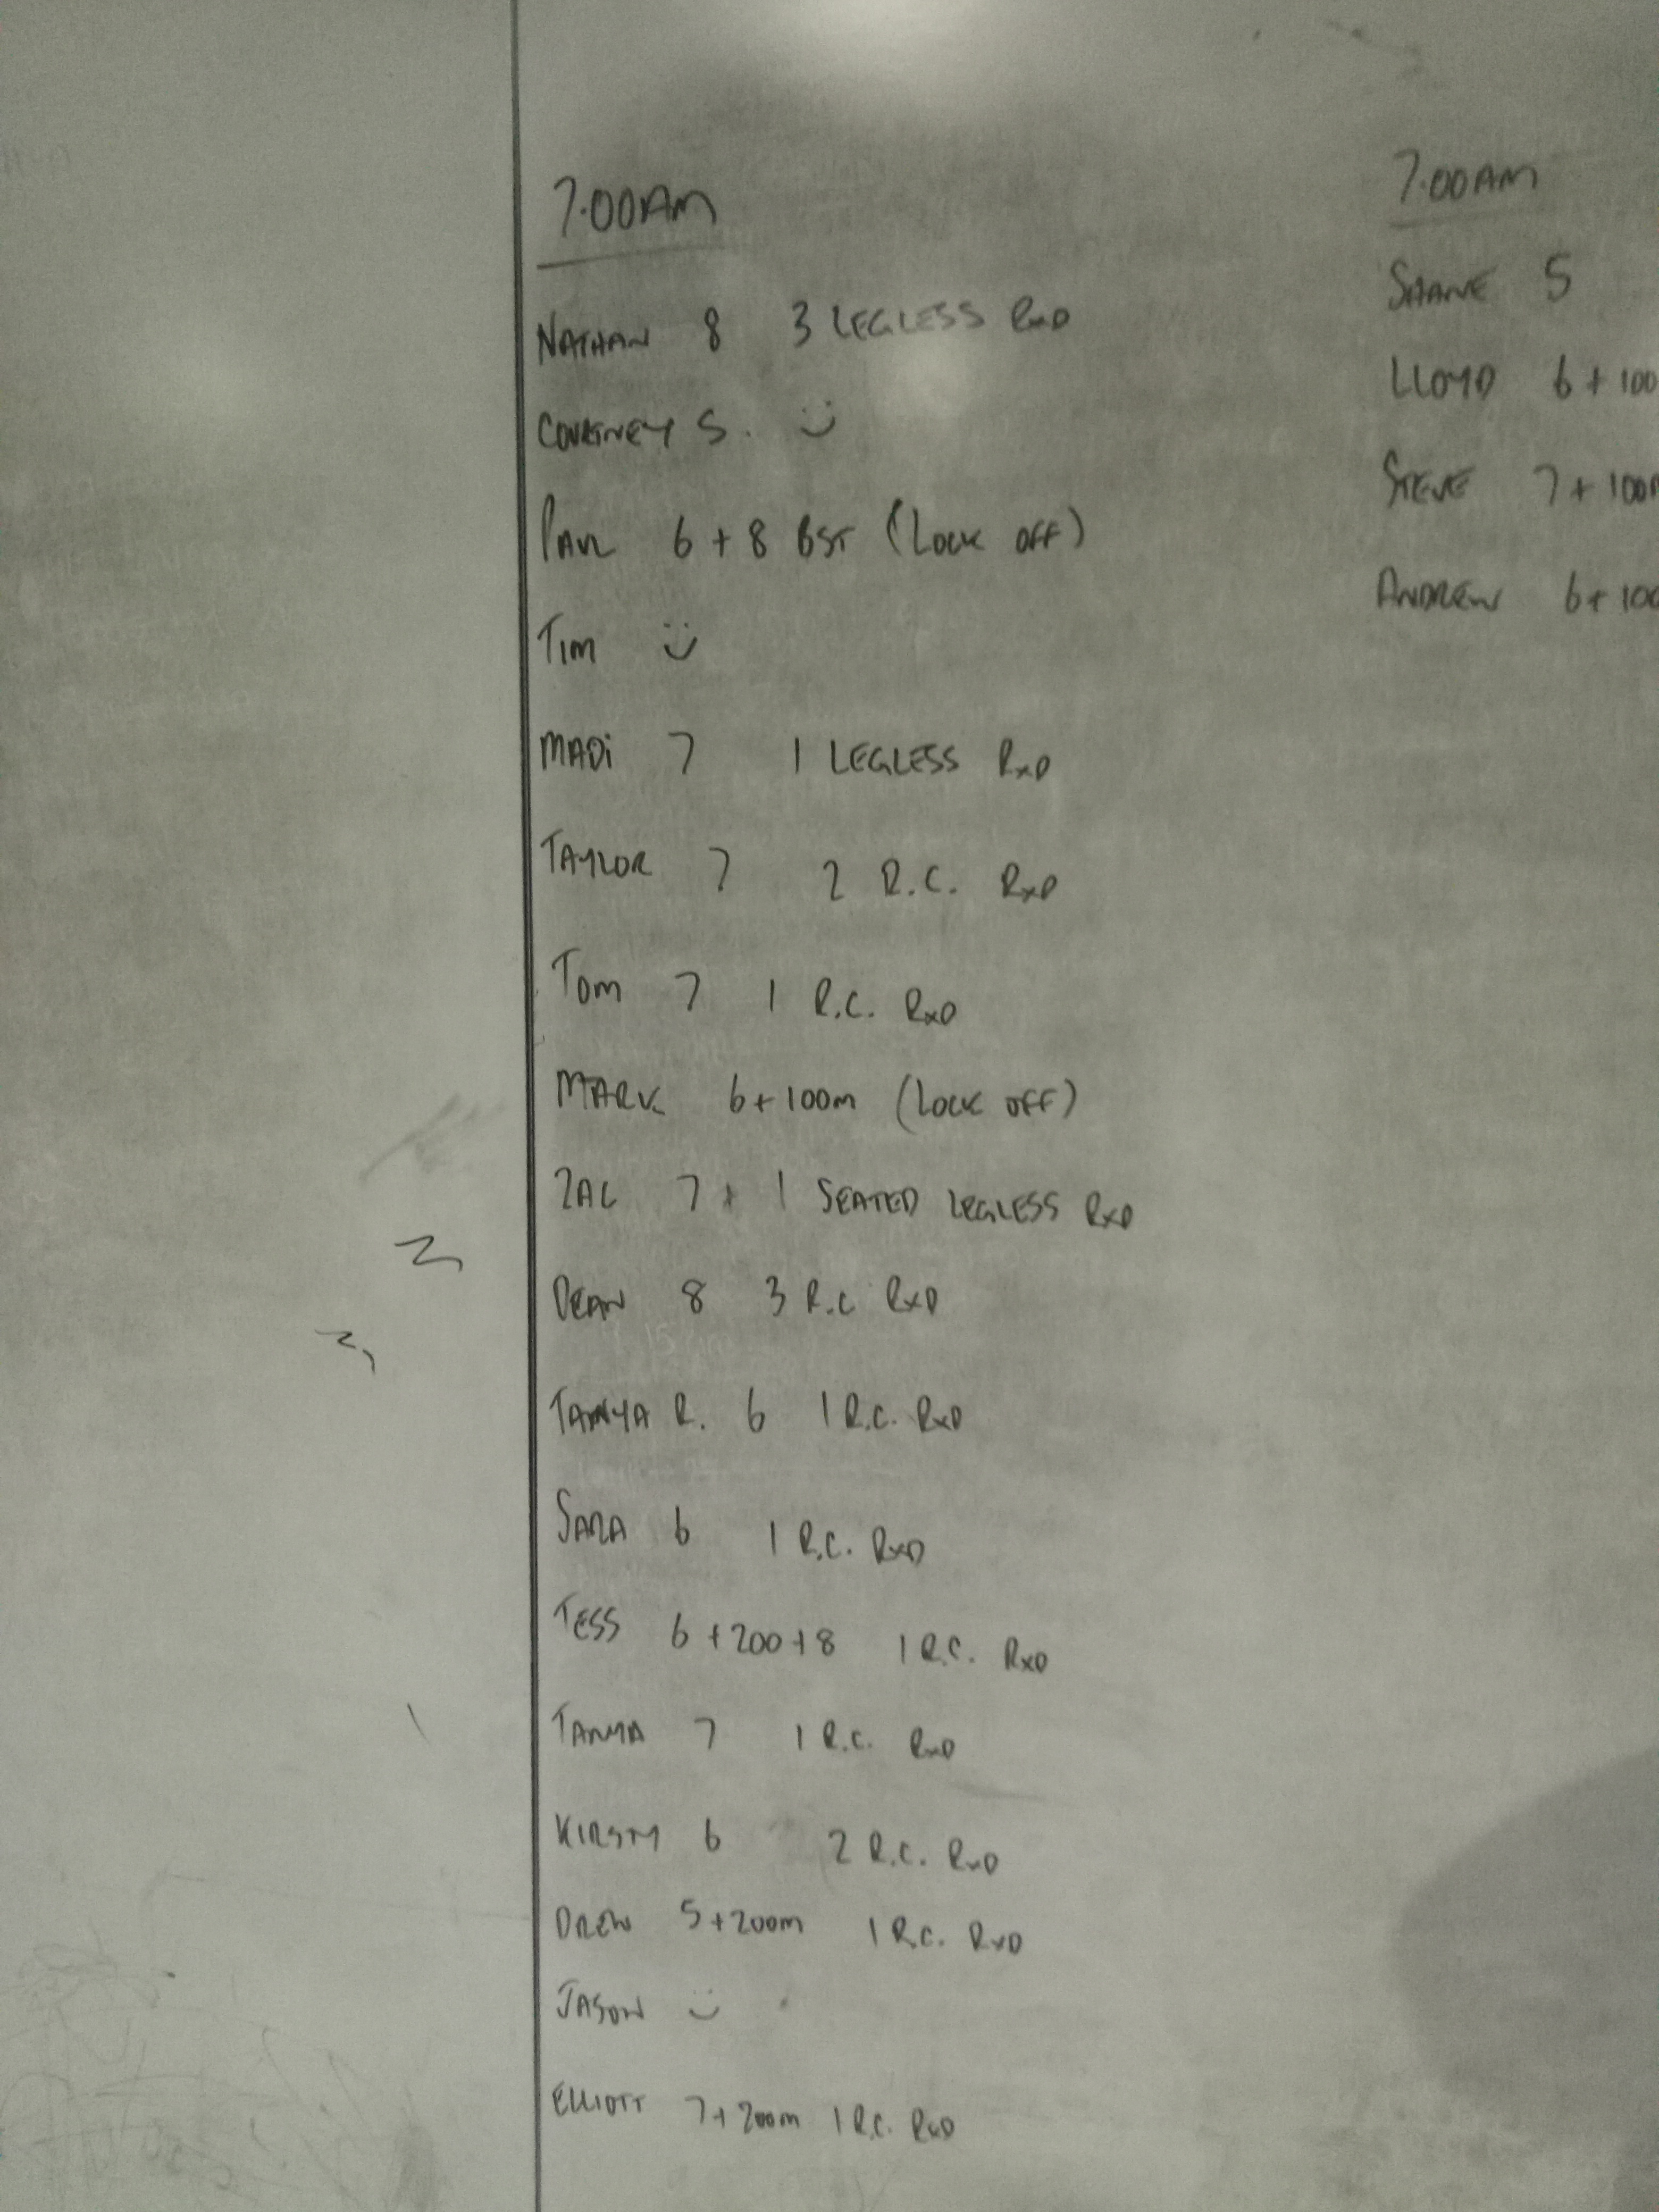 7.00AM
NATHAN 8 3 LEGLESS RxD
COURTNEY S. :)
PAUL 6 + 8 BST (LOCK OFF)
TIM :)
MADi 7 1 LEGLESS RxD
TAYLOR 7 2 R.C. RxD
TOM 7 1 R.C. RxD
MARK 6+100m (LOCK OFF)
ZAC 7+ 1 SEATED LEGLESS RxD
DEAN 8 3 R.C RxD
TANYA R. 6 1 R.C. RxD
SARA 6 1 R.C. RxD
TESS 6+200+8 1 R.C. RxD
TANYA 7 1 R.C. RxD
KIRSTY 6 2 R.C. RxD
DREW 5+200m 1 R.C. RxD
JASON :)
ELLIOTT 7+200m 1 R.C. RxD
7.00AM
SHANE 5
LLOYD 6+100
STEVE 7+100
ANDREW 6+100